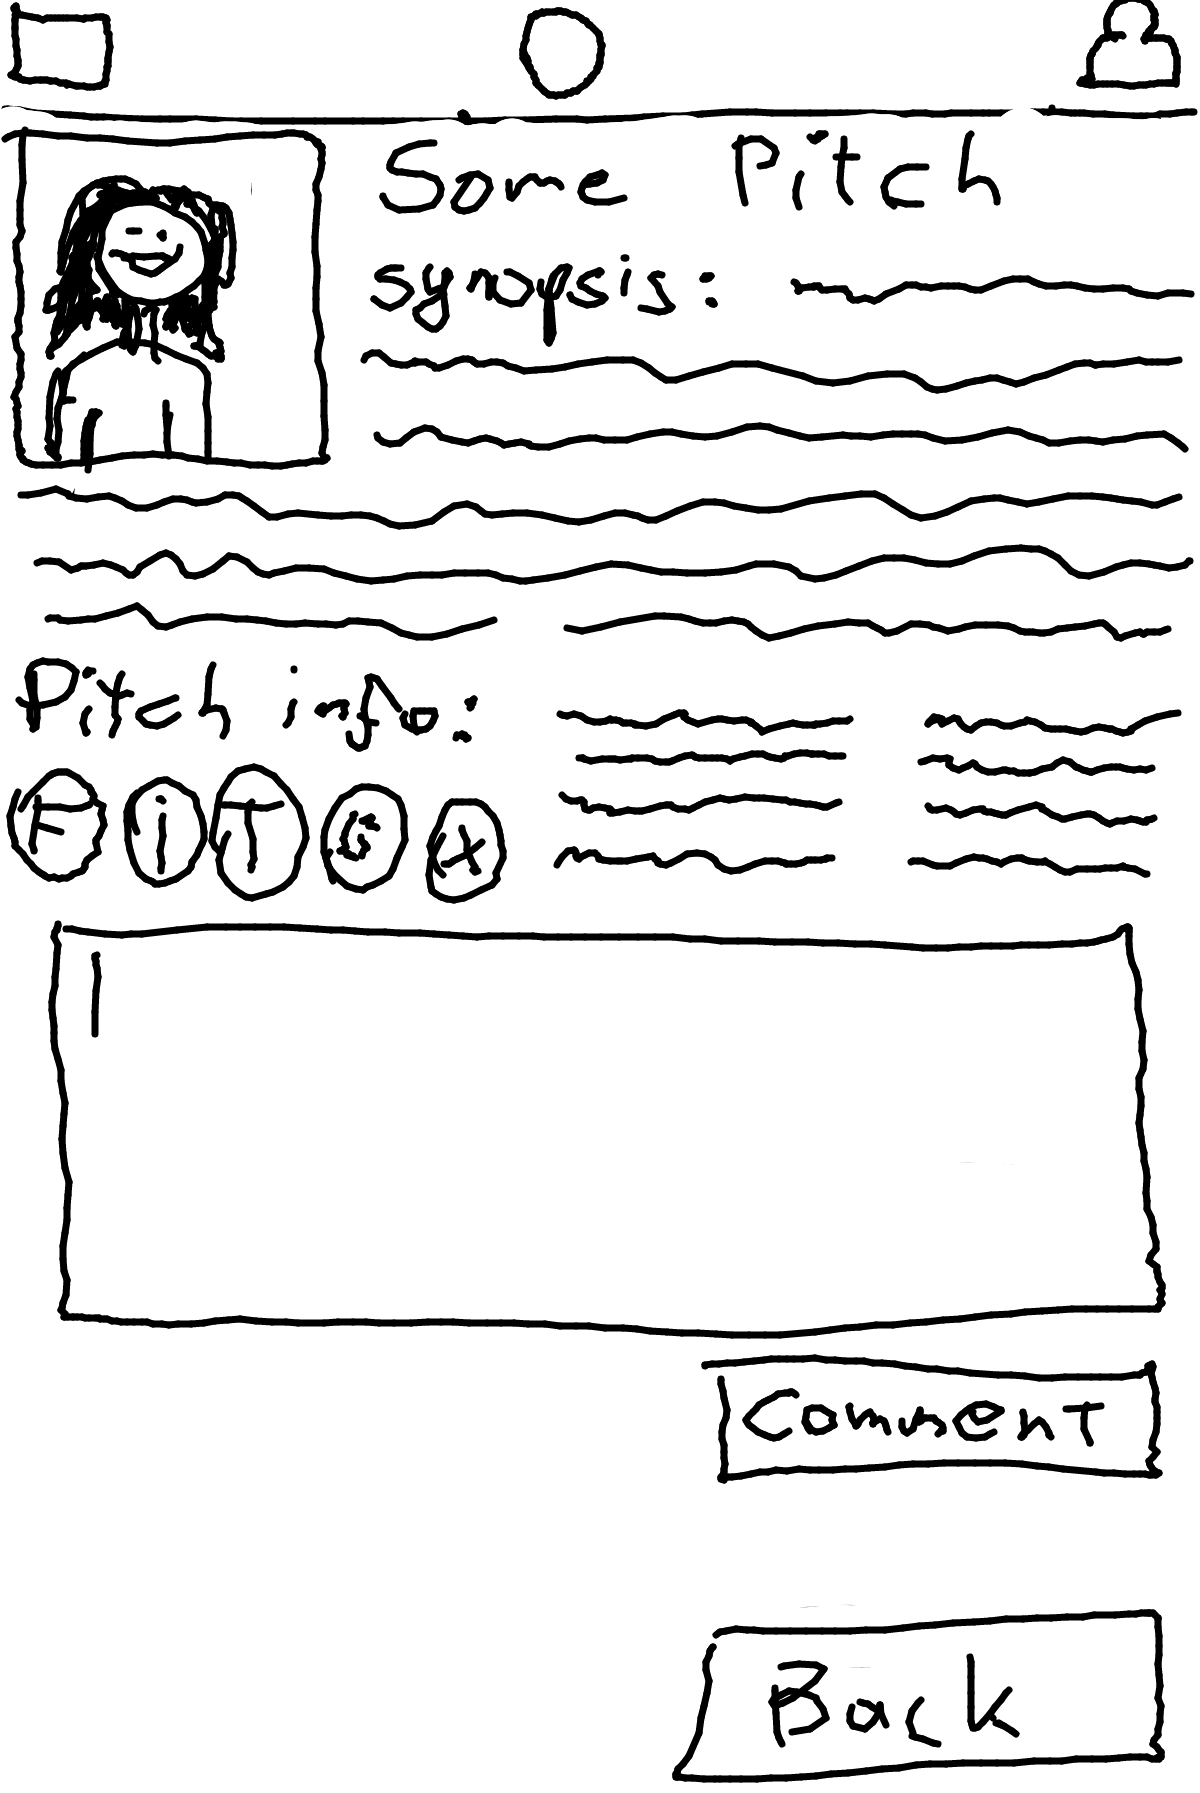 Some Pitch
synopsis:
Pitch info:
F i T G X
Comment
Back